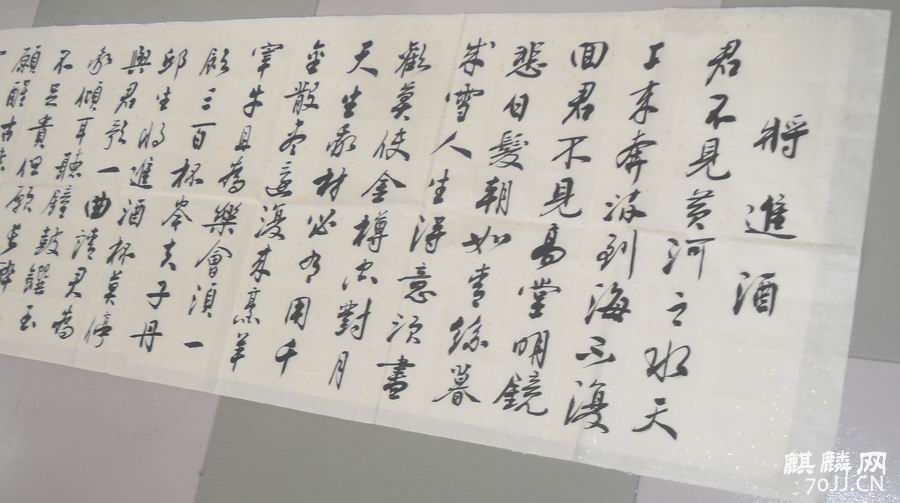 將進酒
君不見黃河之水天
上來奔流到海不復
回君不見高堂明鏡
悲白髮朝如青絲暮
成雪人生得意須盡
歡莫使金樽空對月
天生我材必有用千
金散盡還復來烹羊
宰牛且為樂會須一
飲三百杯岑夫子丹
邱生將進酒杯莫停
與君歌一曲請君為
我傾耳聽鐘鼓饌玉
不足貴但願長醉
願醒古
麒麟网
70JJ.CN